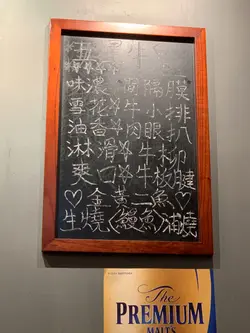 牛
味濃 隔膜
雪花☆牛小排
油香☆肉眼扒
淋滑☆牛柳
爽口☆牛板腱
♡金黃二魚♡
生燒鰻魚滿燒
The
PREMIUM
MALTS